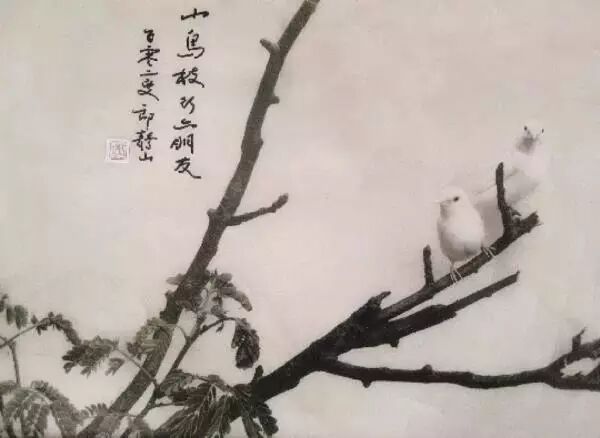 小鳥枝頭亦朋友
百零二叟郎靜山